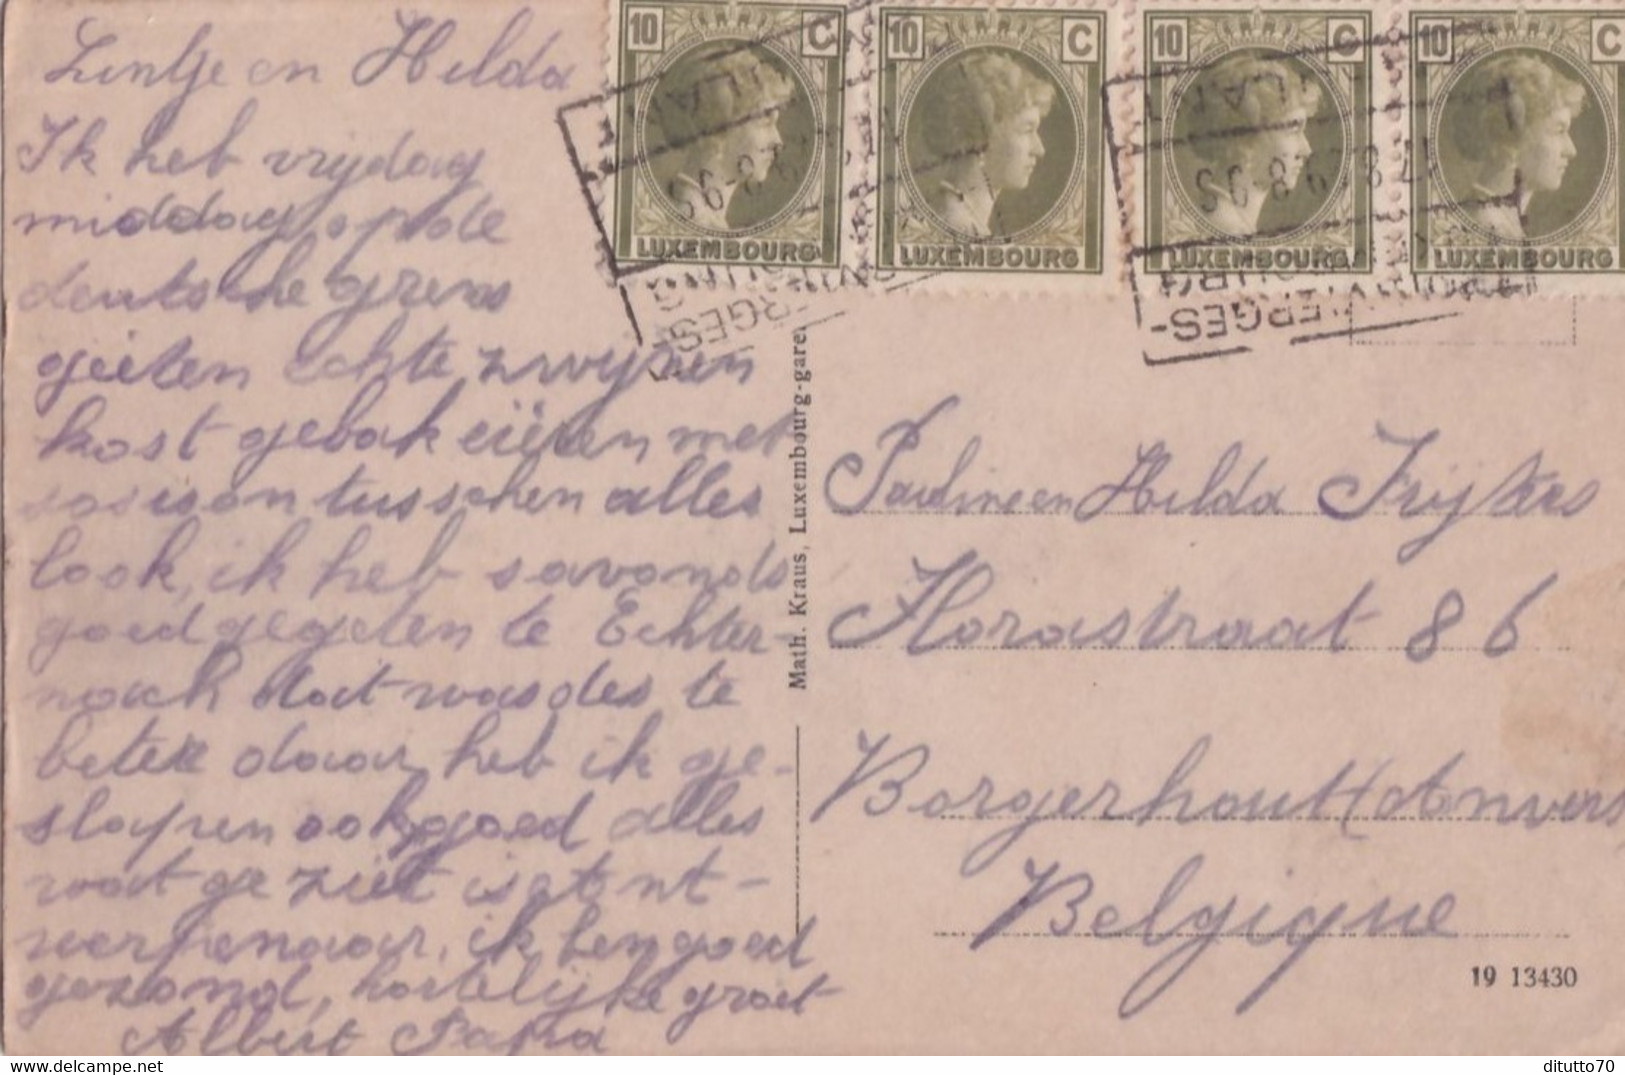 en Hilda
Ik heb vrijdag
middag op de
deutsche grens
gieten echte zwynen
kost gebak eiëren met
sosison tusschen alles
look, ik heb savonds
goed gegeten te Echter-
nach dat was des te
beter daar heb ik ge-
slapen ook goed alles
wat ge ziet is at Ant-
werpenaar, ik ben goed
gezond, hartelijke groet
Albert Papa
10 C
LUXEMBOURG
10 C
LUXEMBOURG
10 C
LUXEMBOURG
10 C
LUXEMBOURG
Math. Kraus, Luxembourg-gare.
Pauline en Hilda Frijters
Florastraat 86
Borgerhout (Anvers
Belgique
19 13430
ditutto70